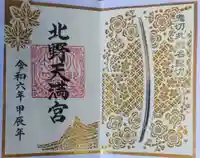 鬼切丸
北野天満宮
令和六年甲辰年